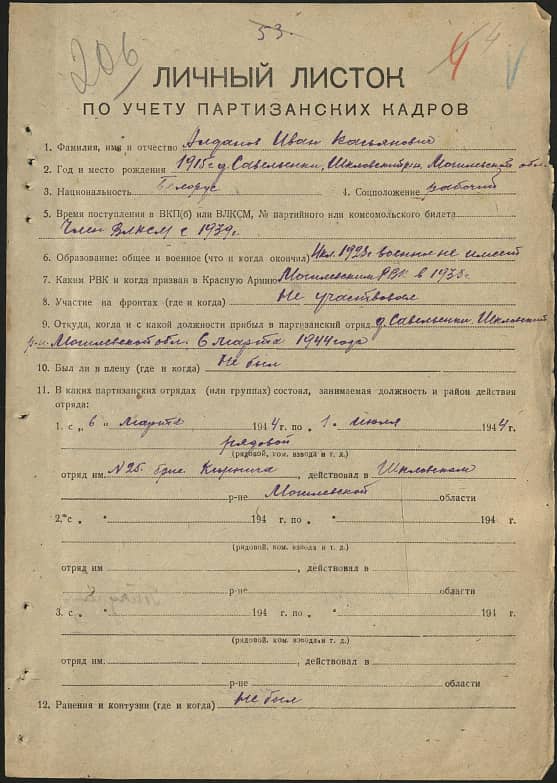 53.
206
4 4
ЛИЧНЫЙ ЛИСТОК
ПО УЧЕТУ ПАРТИЗАНСКИХ КАДРОВ
1. Фамилия, имя и отчество Алданов Иван Касьянович
2. Год и место рождения 1915 г. д. Савельенки, Шкловский р-н, Могилевской обл.
3. Национальность Белорус 4. Соцположение рабочий
5. Время поступления в ВКП(б) или ВЛКСМ, № партийного или комсомольского билета
Член ВЛКСМ с 1939 г.
6. Образование: общее и военное (что и когда окончил) 4 кл. 1928 г. военны не имеет
7. Каким РВК и когда призван в Красную Армию Могилевским РВК в 1938 г.
8. Участие на фронтах (где и когда) Не участвовал
9. Откуда, когда и с какой должности прибыл в партизанский отряд д. Савельенки, Шкловский
р-н. Могилевской обл. 6 марта 1944 года
10. Был ли в плену (где и когда) Не был
11. В каких партизанских отрядах (или группах) состоял, занимаемая должность и район действия
отряда:
1. с „ 6 " марта 1944 г. по „ 1. июля 1944 г.
рядовой
(рядовой, ком. взвода и т. д.)
отряд им. № 25. бриг. , действовал в Шкловском
р-не Могилевской области
2. с „ " 194 г. по „ " 194 г.
(рядовой, ком. взвода и т. д.)
отряд им , действовал в
р-не области
3. с „ " 194 г. по „ " 194 г.
(рядовой, ком. взвода и т. д.)
отряд им. , действовал в
р-не области
12. Ранения и контузии (где и когда) не был